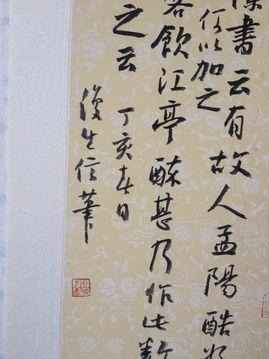 書云有故人孟陽酷
何以加之
客飲江亭酥甚乃作此
之云 丁亥春日
俊生信筆